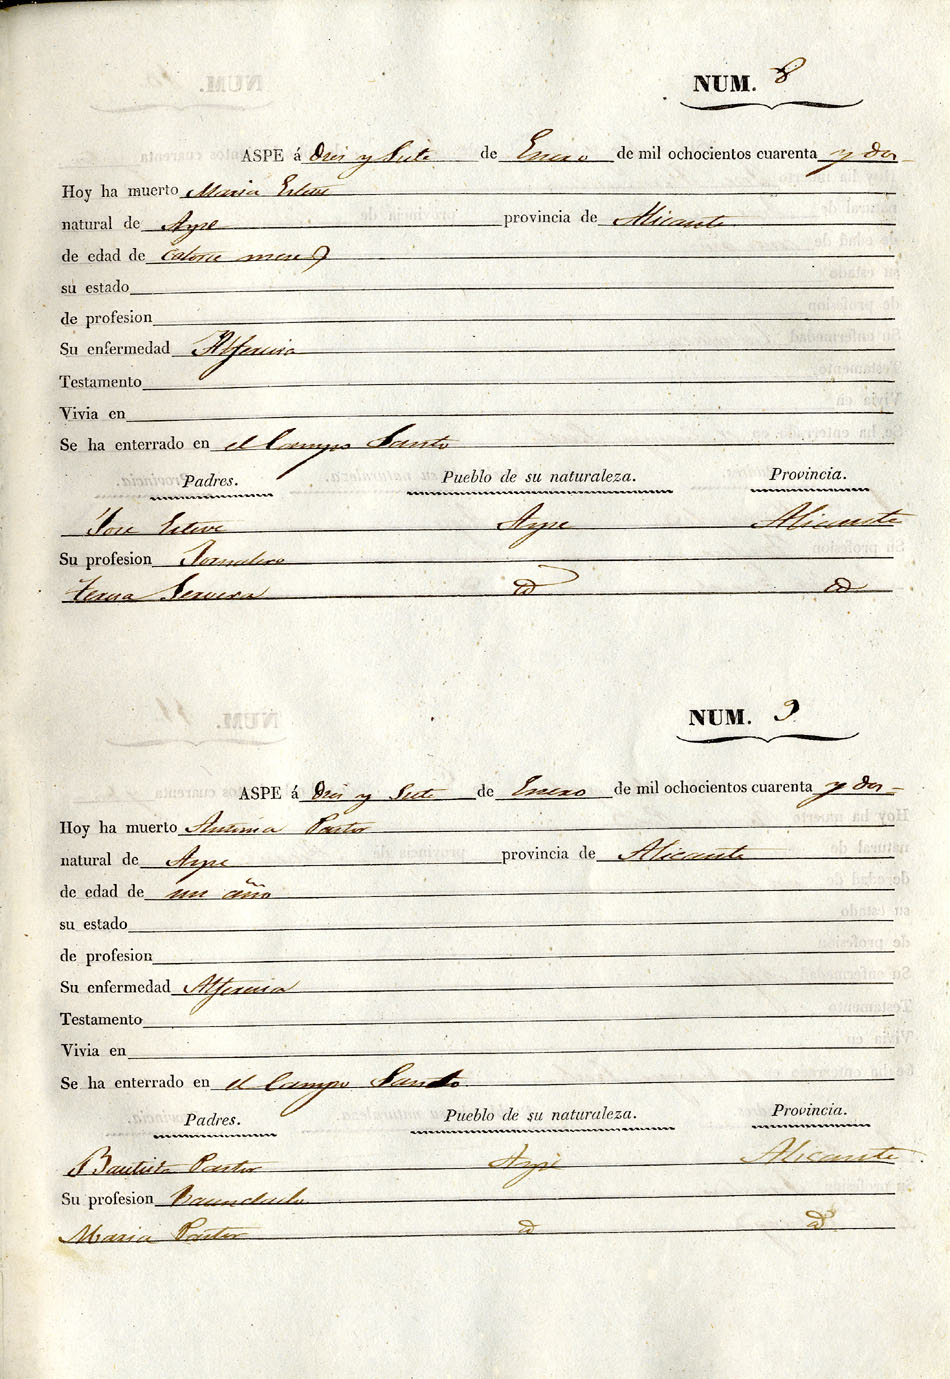 NUM. 8
ASPE á Dies y Siete de Enero de mil ochocientos cuarenta y dos
Hoy ha muerto Maria Esteve
natural de Aspe provincia de Alicante
de edad de catorce meses
su estado
de profesion
Su enfermedad Alferecia
Testamento
Vivia en
Se ha enterrado en el Campo Santo
Padres. Pueblo de su naturaleza. Provincia.
Jose Esteve Aspe Alicante
Su profesion Jornalero
Teresa Cervera id id
NUM. 9
ASPE á Dies y Siete de Enero de mil ochocientos cuarenta y dos
Hoy ha muerto Antonia Pastor
natural de Aspe provincia de Alicante
de edad de un año
su estado
de profesion
Su enfermedad Alferecia
Testamento
Vivia en
Se ha enterrado en el Campo Santo
Padres. Pueblo de su naturaleza. Provincia.
Bautista Pastor Aspe Alicante
Su profesion
Maria Pastor id id